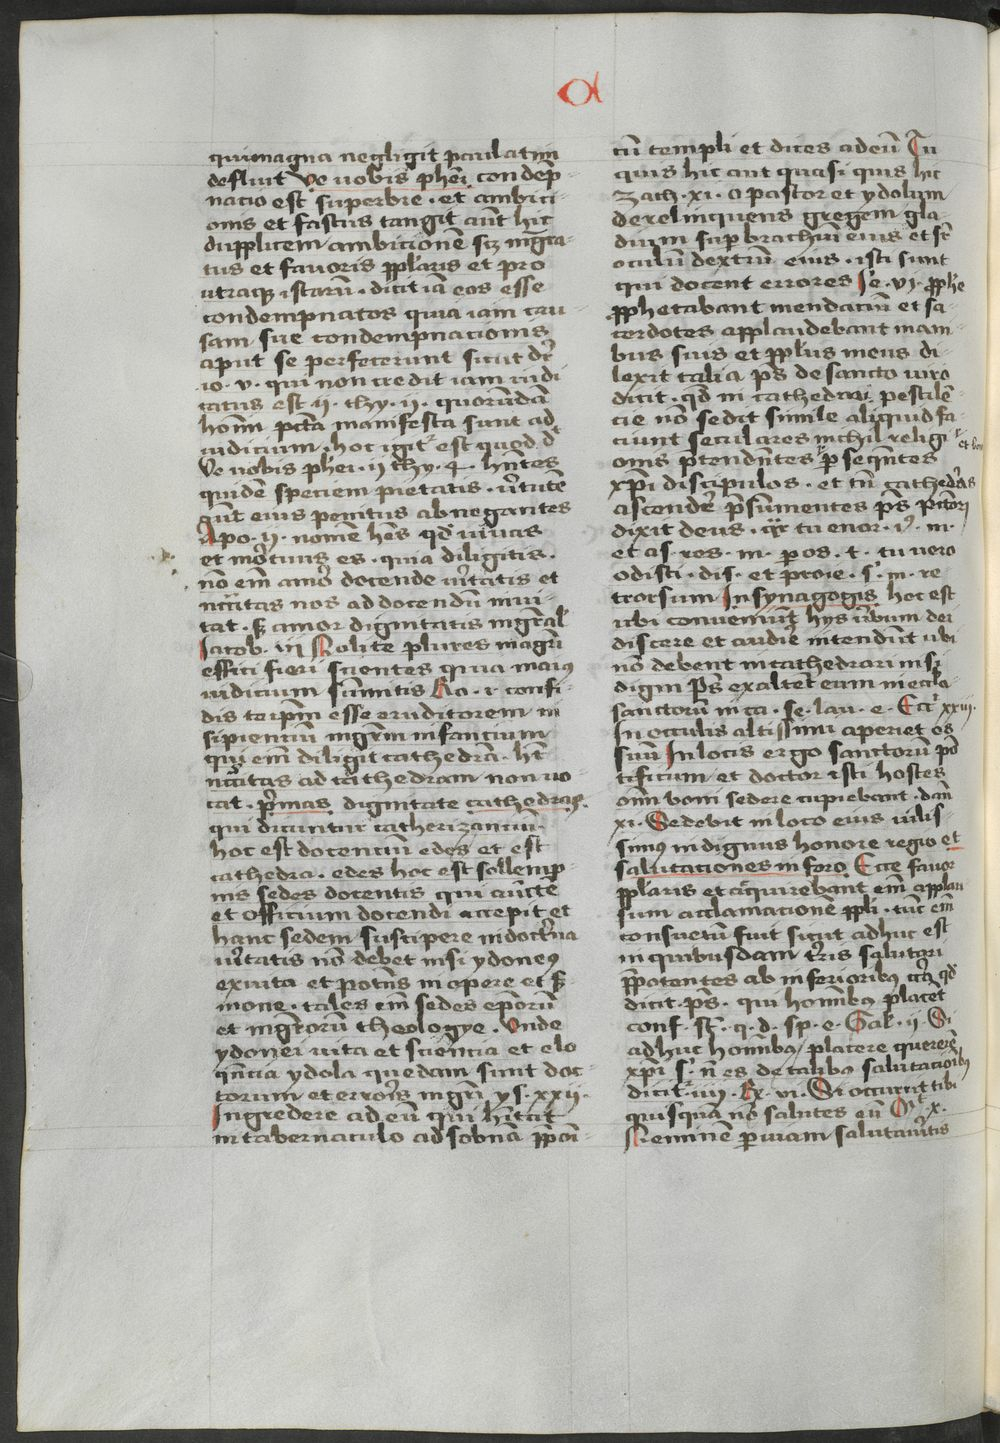 α
qui magna negligit paulatim
defluit Ve vobis phei condep̄
nacio est superbie · et ambici
onis et fastus tangit aūt hic
dupplicem ambicionē sꝫ mgr̄a
tus et favoris ppl̄aris et pro
utraqꝫ istarū · dicit iā eos esse
condempnatos quia iam cau
sam sue condempnacionis
aput se perfecerunt sicut dr̄
io · v · qui non credit iam iudi
catus est ii · thy · ii · quorūdā
hoīm pctā manifesta sunt ad
iudicium · hoc igit᷑ est quod d᷑
Ve vobis phei · ii thy · 4 · hn̄tes
quidē speciem pietatis · v̄tutē
aūt eius penitus abnegantes
Apo · ii · nomē hēs qd̓ vivas
et mortuus es · quia diligitis ·
nō em̄ amor docende v̄itatis et
ncc̄itas nos ad docendū invi
tat · sꝫ amor dignitatis mgr̄al̓
Iacob · iii Nolite plures magr̄i
effici fieri scientes quia maius
iudicium sūmitis Ro · ii confi
dis te ip̄m esse eruditorem in
sipienciū mgr̄m infancium
qui em̄ diligit cathedrā · hc̄
ncc̄itas ad cathedram non vo
cat · p̄mas dignitate cathedras
qui dicuntur catherizancium
hoc est docencium edes et est
cathedra · edes hoc est sollemp
nis sedes docentis qui aucte
et officium docendi accepit et
hanc sedem suscipere in doctrina
v̄itatis nō debet nisi ydoneus
ex vita et potēns in opere et s̄
mone · tales em̄ sedes ep̄orū
et mgr̄orū theologye · Unde
ydonei vita et sciencia et elo
qn̄cia ydola quedam sunt doc
torum et erroris mgr̄i ys · xxii ·
Ingredere ad eū qui hītat
in tabernaculo ad sobnā p̄poi
tū templi et dices ad eū Tu
quis hic aut quasi quis hic
Zach · xi · O pastor et ydolum
derelinquens gregem gla
dium super brachiū eius et sr̄
oculū dextrū eius · isti sunt
qui docent errores Ie · vi · pphe
pphetabant mendaciū et sa
cerdotes applaudebant mani
bus suis et ppl̄us meus di
lexit talia ps̄ de sancto viro
dicit · qd̓ in cathedra pestilē
cie nō sedit simile aliquid fa
ciunt seculares nichil religi
et bo
onis p̄tendentes p̄seqn̄tes
xp̄i discipulos · et tn̄ cathedras
ascendēr p̄sumentes ps̄ pctōri
dixit deus · qr̄ tu enar · i · m ·
et as · tes · m · p os · t · tu vero
odisti · dis · et proie · s̓ · m · re
trorsum In synagogis hoc est
ubi conveniūt hys v̄bum dei
discere et audire intendūt ubi
nō debent incathedrari nisi
digni ps̄ exaltent eum in eccl̄a
sanctorū in ca · se · lau · e · Ecc̓ xxiii ·
In oculis altissimi aperiet os
suū In locis ergo sanctorū pō
tificum et doctor isti hostes
oīm boni sedere cupiebant · dan̄
xi · Sedebit in loco eius vilis
simus indignus honore regio et
salutaciones in foro Ecce favor
ppl̄aris et acquirebant em̄ applau
sum acclamacionē ppl̓i · tūc em̄
consuetū fuit sicut adhuc est
in quibusdam tr̄is salutari
p̄potentes ab inferioribus · qd̓
dicit · ps̄ · qui hoīnibus placēt
conf · st̄ · q · d · sp · e · Gal · ii · Si
adhuc hoīnibus placere querērē
xp̄i s̓ · n̄ es de talibus salutacioibus
dicit᷑ iiii · Rx · vi · Si occurrit tibi
quisquā nō salutes eū Mt · x ·
Neminē per viam salutav̄itis